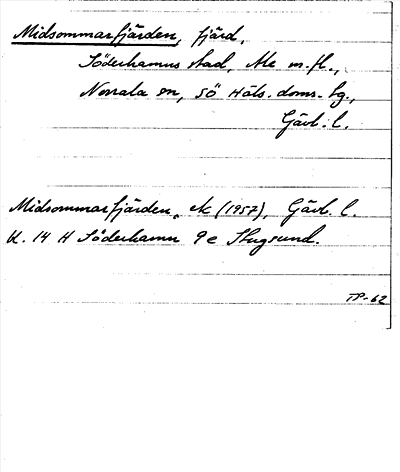 Midsommarfjärden, fjärd,
Söderhamns stad, Ale m. fl.,
Norrala sn, SÖ Häls. doms. tg.,
Gävl. l.
Midsommarfjärden, ek (1957), Gävl. l.
K. 14 H Söderhamn 9e Stugsund.
TP-62